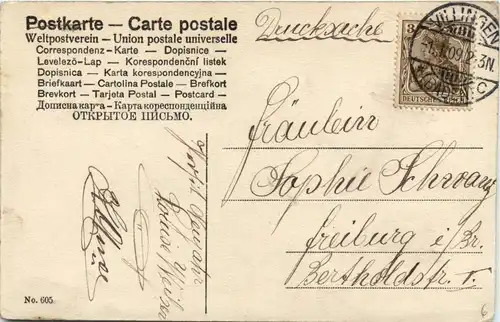 Postkarte — Carte postale
Weltpostverein – Union postale universelle
Correspondenz-Karte — Dopisnice —
Levelező-Lap — Korespondenční listek
Dopisnica — Karta korespondencyjna —
Briefkaart — Cartolina Postale — Brefkort
Brevkort — Tarjeta Postal — Postcard —
Дописна карта - Карта кореспонденційна
ОТКРЫТОЕ ПИСЬМО.
Drucksache
3
DEUTSCHES REICH
VILLINGEN
Fräulein
Sophie Schwarz
Freiburg i/Br.
Bertholdstr.
Neujahr
No. 605